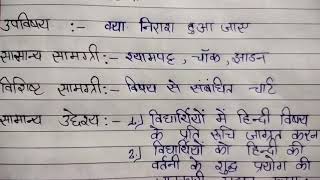 उपविषय :- क्या निराश हुआ जाए
सामान्य सामग्री :- श्यामपट्ट, चॉक, झाडन
विशिष्ट सामग्री :- विषय से संबंधित चार्ट
सामान्य उद्देश्य :- 1.) विद्यार्थियों में हिन्दी विषय
के प्रति रुचि जागृत करना
2.) विद्यार्थियों को हिन्दी की
वर्तनी के शुद्ध प्रयोग की